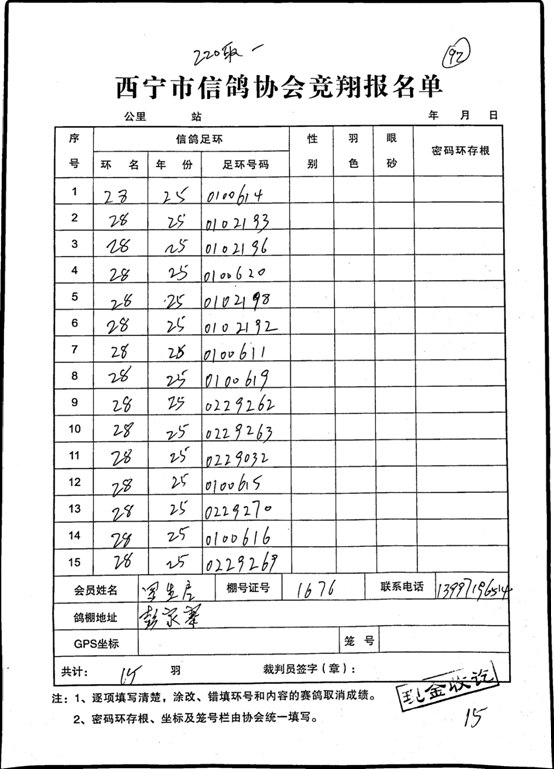 220取一
92
西宁市信鸽协会竞翔报名单
公里 站 年 月 日
序号 信鸽足环 性别 羽色 眼砂 密码环存根
环 名 年 份 足环号码
1 28 25 0100614
2 28 25 0102193
3 28 25 0102196
4 28 25 0100620
5 28 25 0102198
6 28 25 0102192
7 28 25 0100611
8 28 25 0100619
9 28 25 0229262
10 28 25 0229263
11 28 25 0229032
12 28 25 0100615
13 28 25 0229270
14 28 25 0100616
15 28 25 0229269
会员姓名 棚号证号 1676 联系电话 13997196514
鸽棚地址 彭家寨
GPS坐标 笼 号
共计: 15 羽 裁判员签字(章):
现金收讫
注:1、逐项填写清楚,涂改、错填环号和内容的赛鸽取消成绩。
2、密码环存根、坐标及笼号栏由协会统一填写。
15